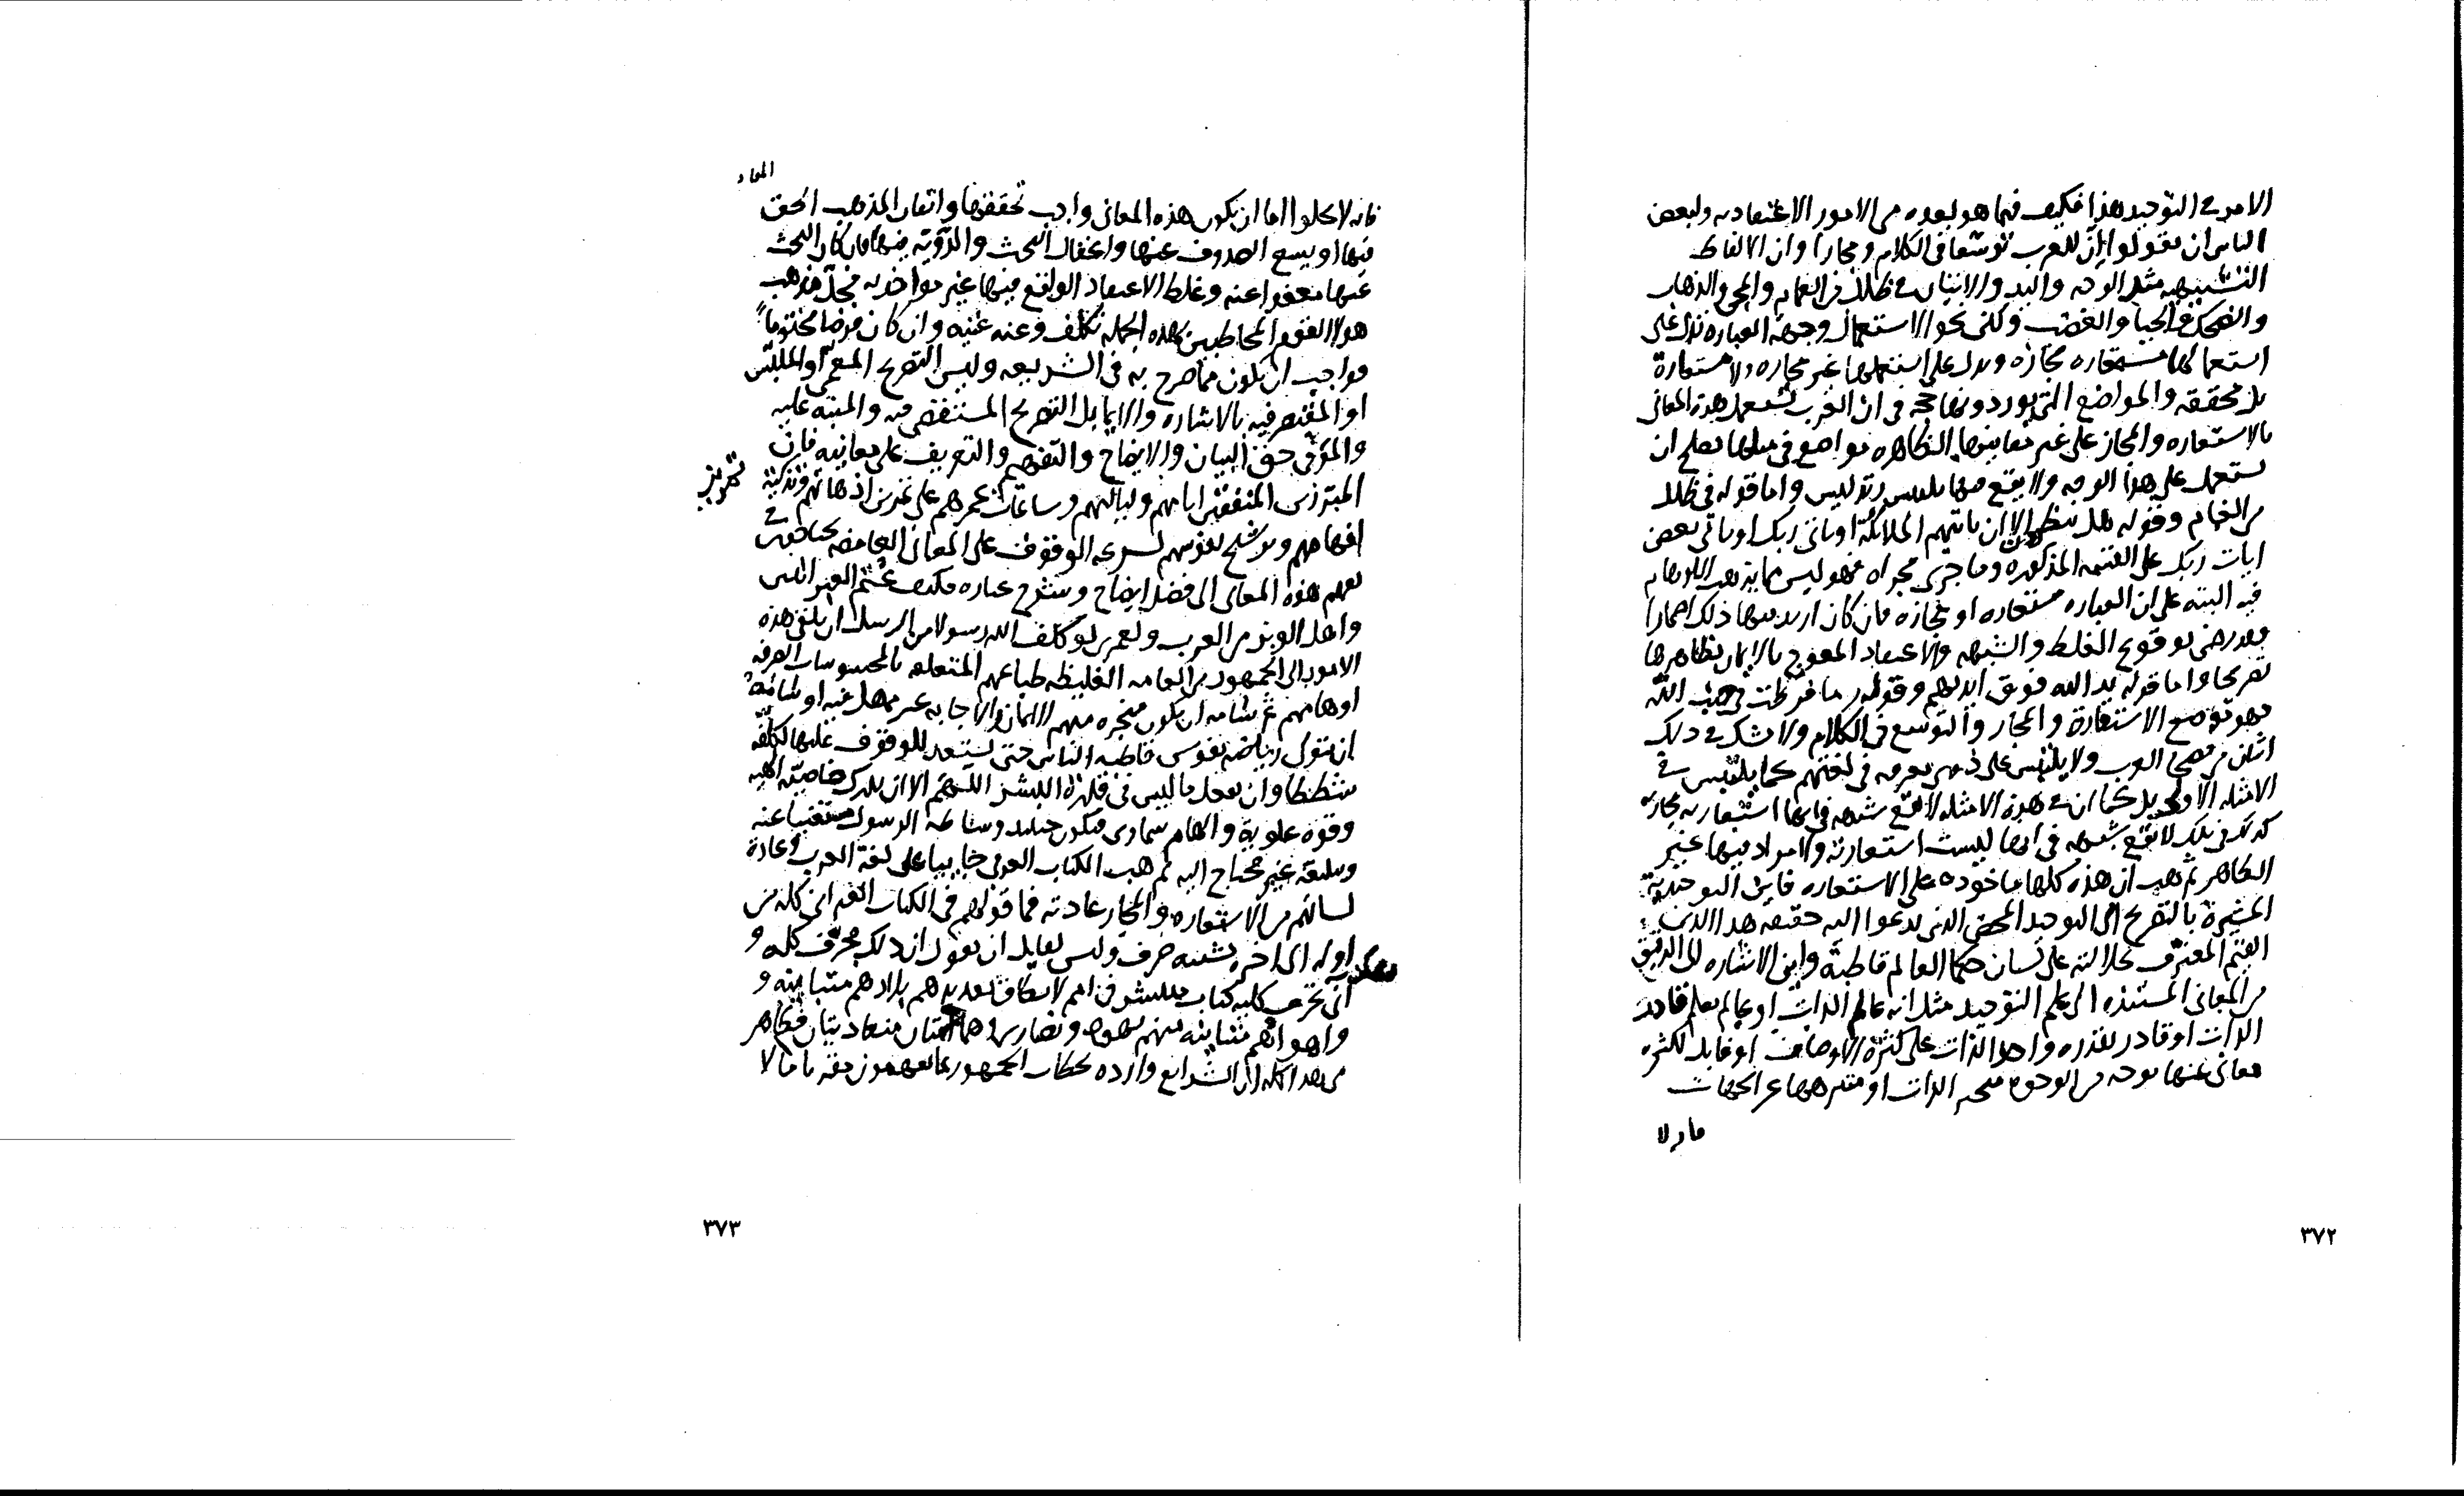 الامر في التوحيد هذا فكيف فيما هو بعده من الامور الاعتقاديه ولبعض
الناس ان يقولوا ان للعرب توسعا في الكلام ومجازا وان الالفاظ
التشبيهيه مثل الوجه واليد والاتيان في ظلل من الغمام والمجي والذهاب
والضحك والحيا والغضب ولكن نحو الاستعمال وجهة العباره تدل على
استعمالها مستعاره مجازه ويدل على استعمالها غير مجازه ولا مستعارة
بل محققه والمواضع التي يوردونها حجه في ان العرب تستعمل هذه المعاني
بالاستعاره والمجاز على غير معانيها الظاهره مواضع في مثلها تصلح ان
تستعمل على هذا الوجه ولا يقع فيها تلبيس وتدليس واما قوله في ظلل
من الغمام وقوله هل ينظرون الا ان تاتيهم الملائكة او ياتي ربك او ياتي بعض
ايات ربك على القسمه المذكوره وما جرى مجراه فهو ليس مما يذهب الاوهام
فيه البته على ان العباره مستعاره او مجازه فان كان اريد فيها ذلك اضمارا
فقد رضى بوقوع الغلط والشبهه والاعتقاد المعوج بالايمان بظاهرها
تصريحا واما قوله يد الله فوق ايديهم وقوله ما فرطت في جنب الله
فهو موضع الاستعارة والمجاز والتوسع في الكلام ولا يشك في ذلك
اثنان من فصحا العرب ولا يلتبس على ذي معرفه في لغتهم كما يلتبس في
الامثله الاولى بل كما ان في هذه الامثله لا تقع شبهه في انها استعاريه مجازية
كذلك في تلك لا تقع شبهه في انها ليست استعارية ولا مراد فيها غير
الظاهر ثم هب ان هذه كلها ماخوده على الاستعاره فاين التوحيد
المشيرة بالتصريح الى التوحيد المحض الذي يدعوا اليه حقيقه هذا الدين
القيم المعترف بجلالته على لسان حكما العالم قاطبة واين الاشاره الى الدقيق
من المعاني المستنده الى علم التوحيد مثل انه عالم بالذات او عالم بعلم قادر
بالذات او قادر بقدره واحد الذات على كثرة الاوصاف او قابل لكثره
تعالى عنها بوجه من الوجوه متحيز الذات او منزهها عن الجهات
المعاد
فانه لا يخلوا اما ان يكون هذه المعاني واجب تحققها واتقان المذهب الحق
فيها او يسع الصدوف عنها واغفال البحث والروية فيها فان كان البحث
عنها معفوا عنه وغلط الاعتقاد الواقع فيها غير مواخذ به فجل مذهب
هولا القوم المخاطبين بهذه الجمله تكلف وعنه غنيه وان كان فرضا محتوما
فواجب ان يكون مما صرح به في الشريعه وليس التصريح المعمى او الملبس
او المقتصر فيه بالاشاره والايما بل التصريح المستقصى فيه والمنبه عليه
والموفى حق البيان والايضاح والتفهيم والتعريف على معانيه فان
المبرزين المنفقين ايامهم ولياليهم وساعات عمرهم على تمرين اذهانهم وتذكية
افهامهم وترشيح نفوسهم لسرعه الوقوف على المعاني الغامضه يحتاجون في
تفهم هذه المعاني الى فضل ايضاح وشرح عباره فكيف غتم العبرانيين
واهل الوبر من العرب ولعمري لو كلف الله رسولا من الرسل ان يلقى هذه
الامور الى الجمهور من العامه الغليظه طباعهم المتعلقه بالمحسوسات الصرفه
اوهامهم ثم سامه ان يكون منجزه منهم الايمان والاجابه غير ممهل فيه او سامه
ان يتولى رياضه نفوس قاطبه الناس حتى يستعد للوقوف عليها لكلفه
شططا وان يفعل ما ليس في قدرة البشر اللهم الا ان يدركه خاصيه الهيه
وقوه علوية والهام سماوى فيكون حينيذ وساطه الرسول مستغنيا عنه
وتبليغه غير محتاج اليه ثم هب الكتاب العربي جا يبيا على لغة العرب وعادة
لسانهم من الاستعاره والمجاز عادته فما قولهم في الكتاب العبراني كله من
اوله الى اخره تشبيه صرف وليس لقايل ان يقول ان ذلك محرف كله و
انى يحرف كليه كتاب منتشر في امم لا يطاق تعديدهم بلادهم متباينه و
واهواوهم متباينه منهم يهود ونصارى وهما امتان متعاديتان فظاهر
من هذا كله ان الشرايع وارده لخطاب الجمهور بما يفهمون مقربا ما لا
٣٧٢
٣٧٣